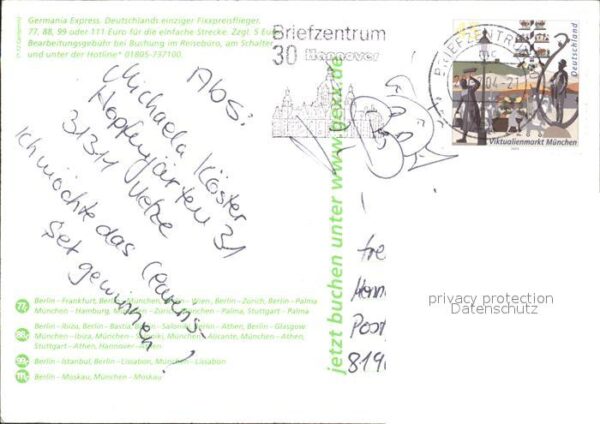 Germania Express. Deutschlands einziger Fixpreisflieger.
77, 88, 99 oder 111 Euro für die einfache Strecke. Zzgl. 5 Euro
Bearbeitungsgebühr bei Buchung im Reisebüro, am Schalter
und unter der Hotline* 01805-737100.
Abs:
Michaela Köster
Hopfengärten 31
31311 Uetze
Ich möchte das
Set gewinnen!
77,- Berlin – Frankfurt, Berlin – München, Berlin – Wien, Berlin – Zürich, Berlin – Palma
München – Hamburg, München – Zürich, München – Palma, Stuttgart – Palma
88,- Berlin – Ibiza, Berlin – Bastia, Berlin – Saloniki, Berlin – Athen, Berlin – Glasgow
München – Ibiza, München – Saloniki, München – Alicante, München – Athen,
Stuttgart – Athen, Hannover – Athen
99,- Berlin – Istanbul, Berlin – Lissabon, München – Lissabon
111,- Berlin – Moskau, München – Moskau
jetzt buchen unter www.gexx.de
Briefzentrum
30 Hannover
BRIEFZENTRUM
Deutschland
Viktualienmarkt München
Post
819
privacy protection
Datenschutz